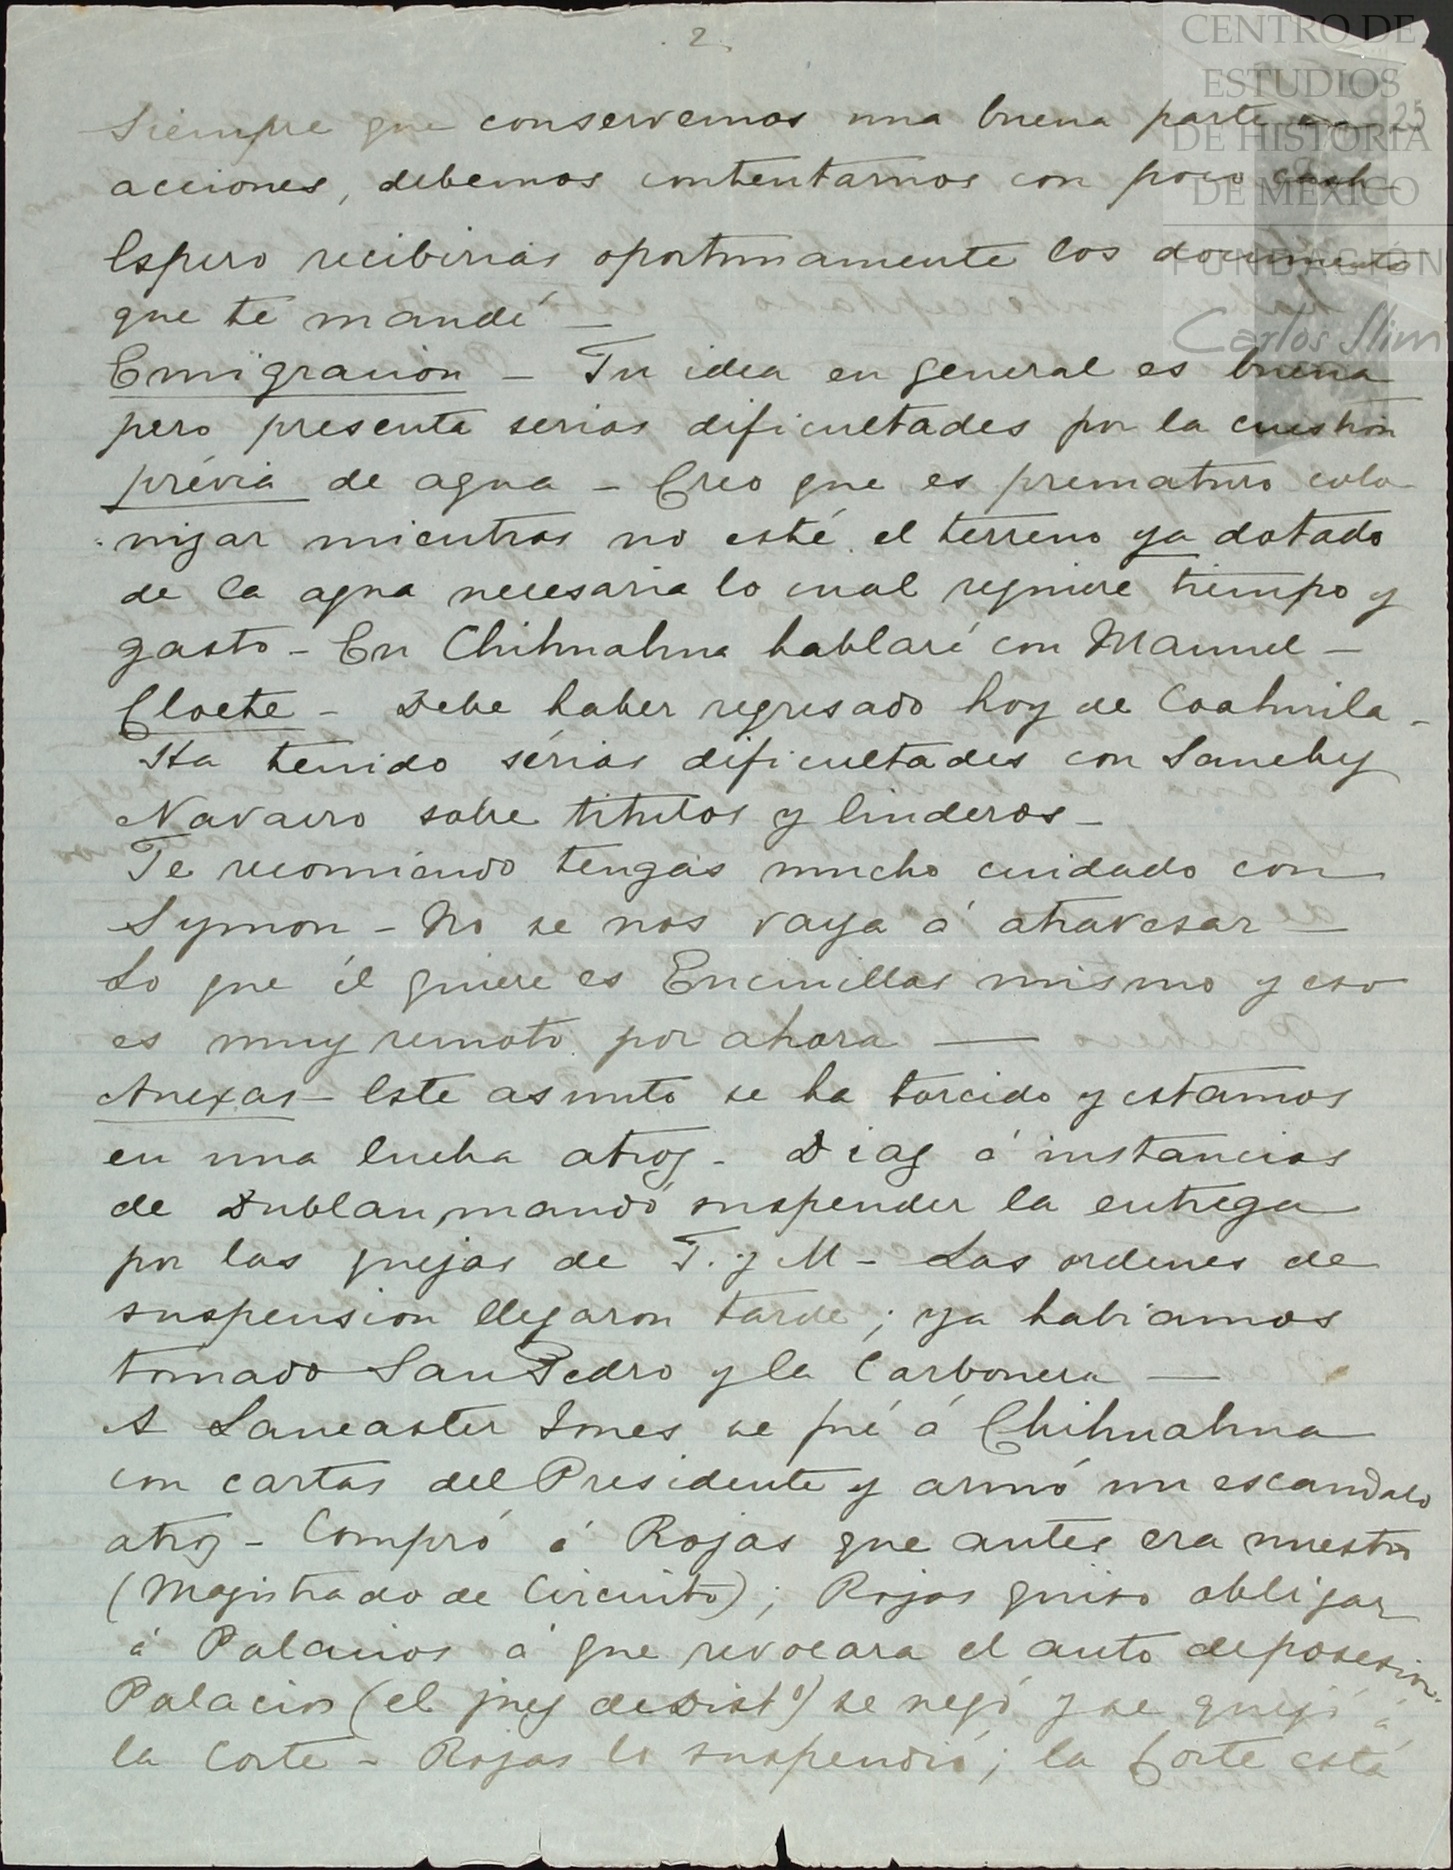 2
CENTRO DE
ESTUDIOS
DE HISTORIA
DE MÉXICO
FUNDACIÓN
Carlos Slim
25
Siempre que conservemos una buena parte en
acciones, debemos contentarnos con poco cash_
Espero recibirías oportunamente los documentos
que te mandé _
Emigración _ Tu idea en general es buena
pero presenta serias dificultades por la cuestion
prévia de agua _ Creo que es prematuro colo
nizar mientras no esté el terreno ya dotado
de la agua necesaria lo cual requiere tiempo y
gasto _ En Chihuahua hablaré con Manuel _
Cloete _ Debe haber regresado hoy de Coahuila _
Ha tenido sérias dificultades con Sanchez
Navarro sobre titulos y linderos _
Te recomiendo tengas mucho cuidado con
Symon _ No se nos vaya á atravesar _
Lo que él quiere es Encinillas mismo y eso
es muy remoto por ahora __
Anexas _ Este asunto se ha torcido y estamos
en una lucha atroz _ Diaz á instancias
de Dublan, mandó suspender la entrega
por las quejas de T. y M _ Las ordenes de
suspension llegaron tarde; ya habiamos
tomado San Pedro y la Carbonera __
A Lancaster Jones se fué á Chihuahua
con cartas del Presidente y armó un escandalo
atroz _ Compró á Rojas que antes era nuestro
(Magistrado de Circuito); Rojas quiso obligar
á Palacios á que revocara el auto de posesion.
Palacios (el juez de Dist°) se negó y se quejó á
la Corte _ Rojas lo suspendió; la Corte está